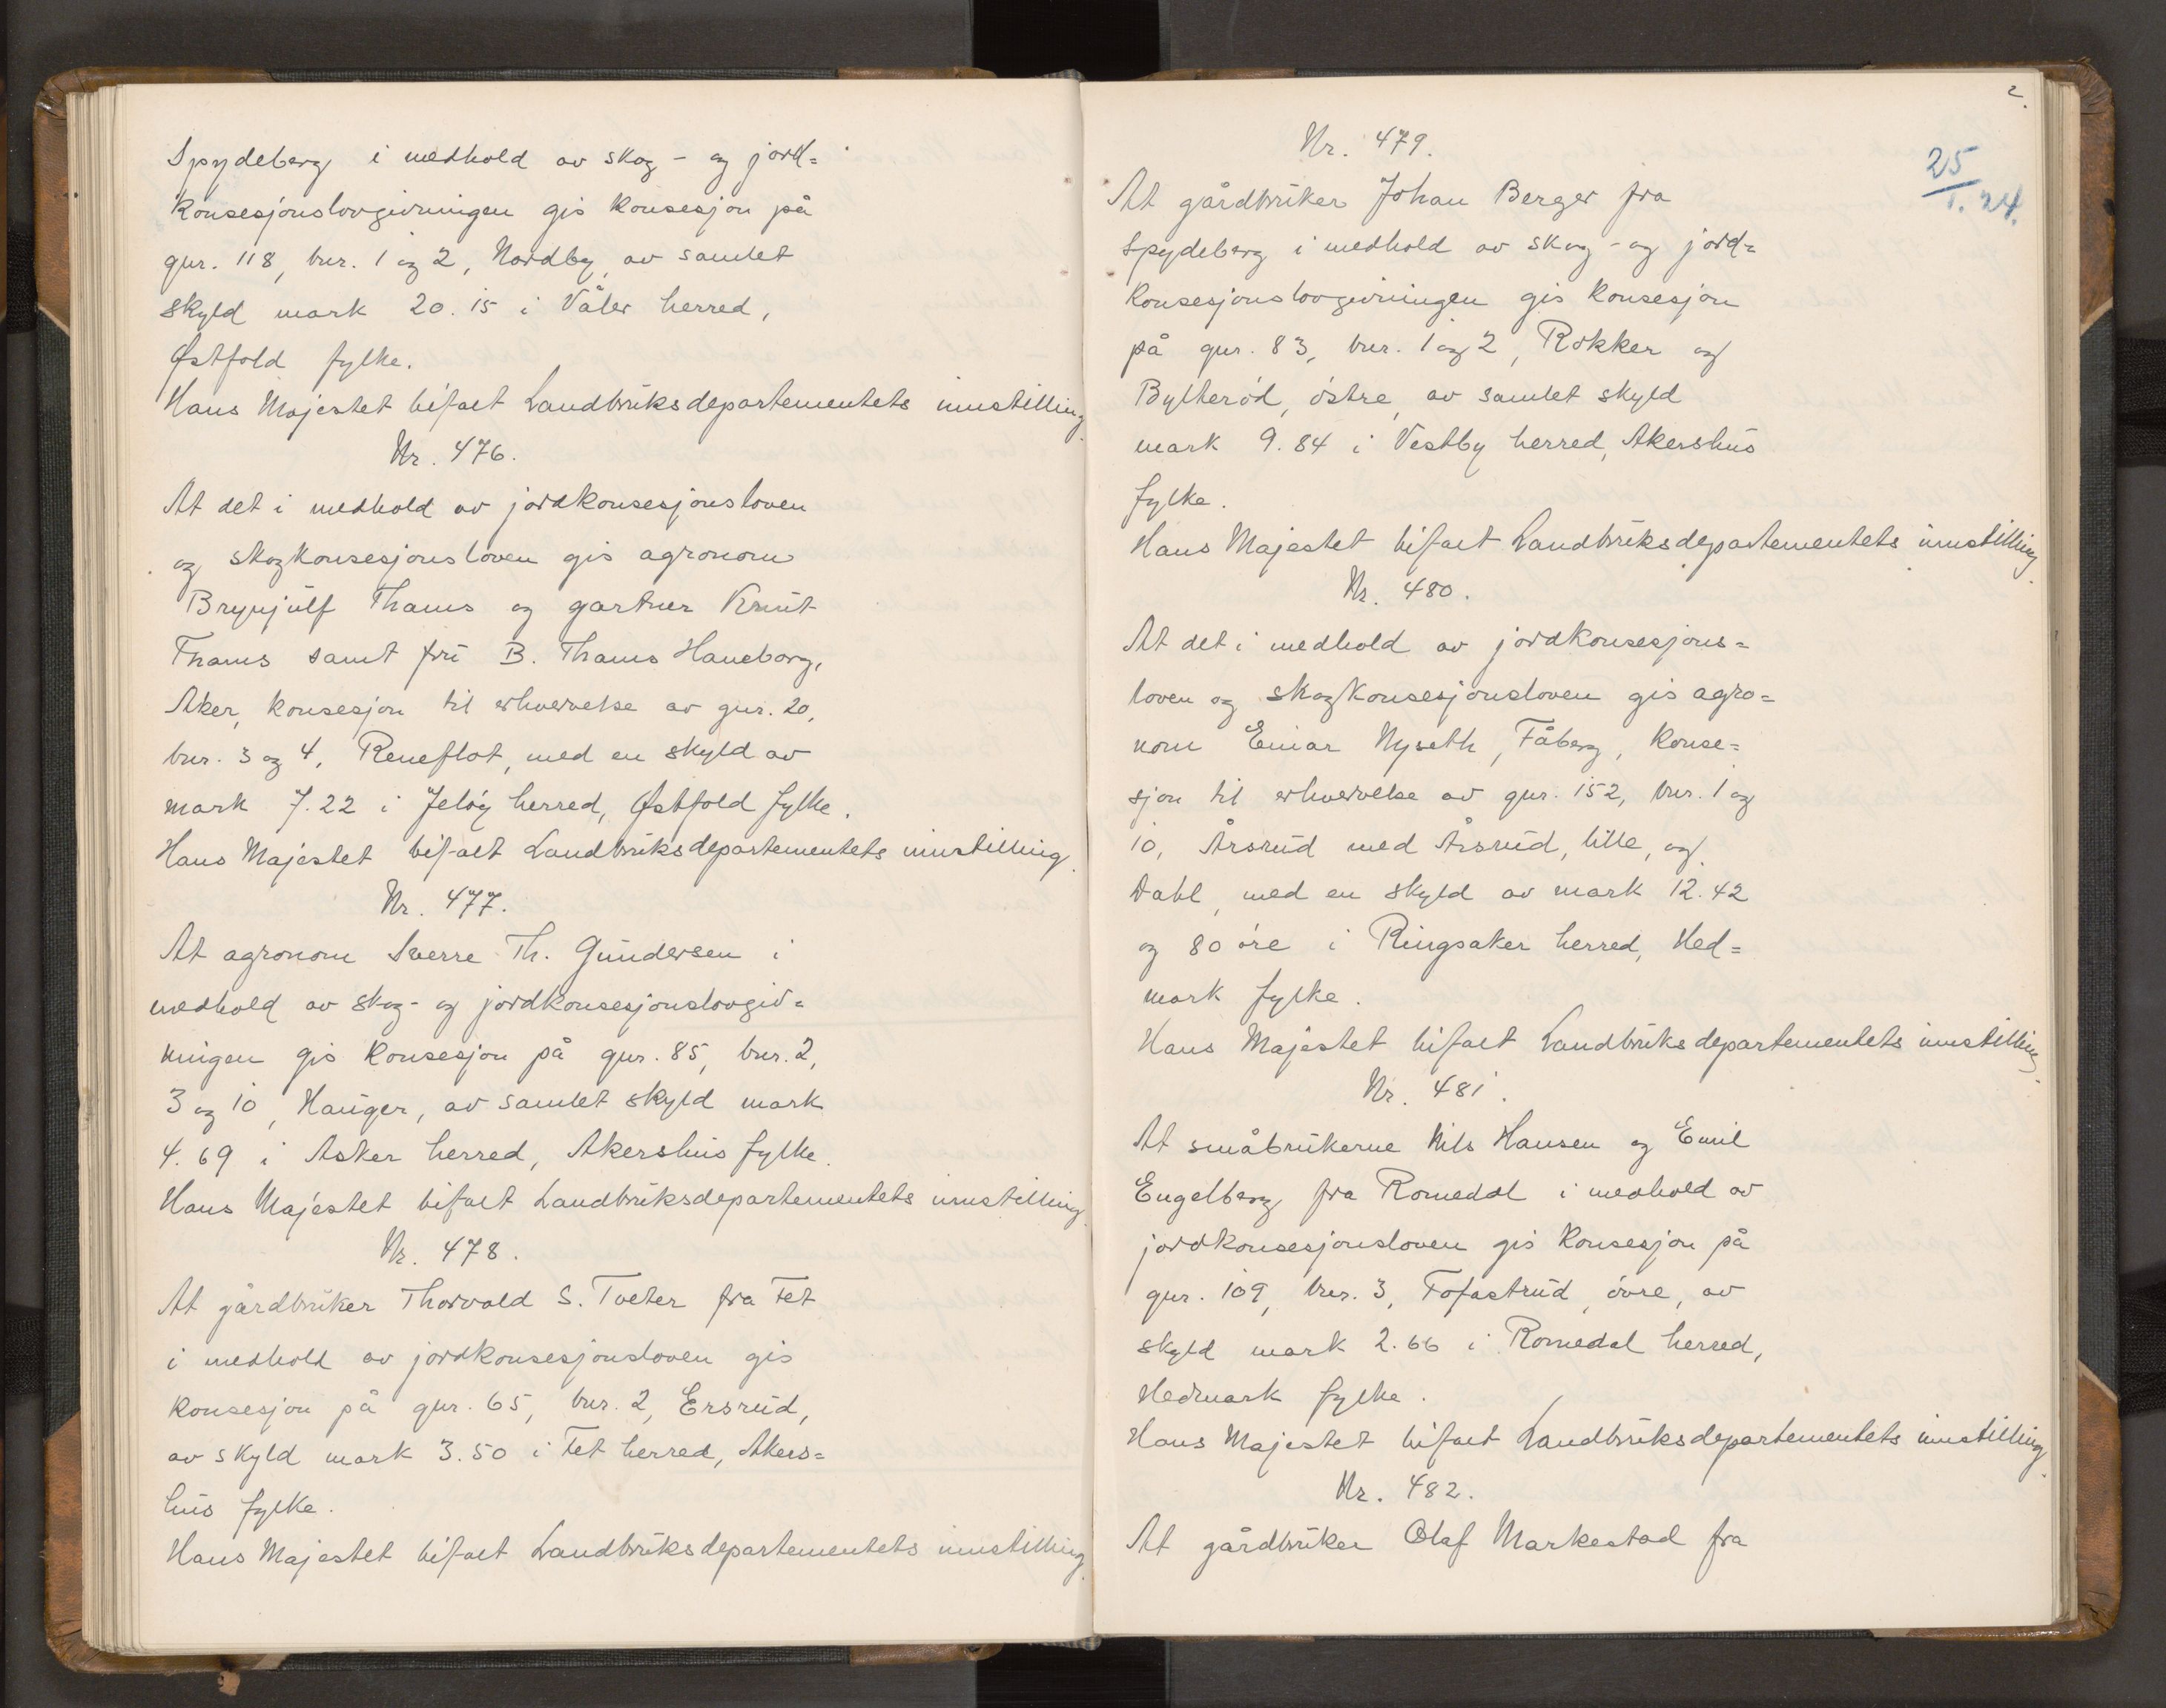 Spydeberg i medhold av skog- og jord=
konsesjonslovgivningen gis konsesjon på
gnr. 118, bnr. 1 og 2, Nordby, av samlet
skyld mark 20.15 i Våler herred,
Østfold fylke.
Hans Majestet bifalt Landbruksdepartementets innstilling.
Nr. 476.
At det i medhold av jordkonsesjonsloven
og skogkonsesjonsloven gis agronom
Brynjulf Thams og gartner Knut
Thams samt fru B. Thams Haneborg,
Aker, konsesjon til erhvervelse av gnr. 20,
bnr. 3 og 4, Reneflot, med en skyld av
mark 7.22 i Jeløy herred, Østfold fylke.
Hans Majestet bifalt Landbruksdepartementets innstilling.
Nr. 477.
At agronom Sverre Th. Gundersen i
medhold av skog- og jordkonsesjonslovgiv=
ningen gis konsesjon på gnr. 85, bnr. 2,
3 og 10, Hauger, av samlet skyld mark
4.69 i Asker herred, Akershus fylke.
Hans Majestet bifalt Landbruksdepartementets innstilling.
Nr. 478.
At gårdbruker Thorvald S. Tveter fra Fet
i medhold av jordkonsesjonsloven gis
konsesjon på gnr. 65, bnr. 2, Ersrud,
av skyld mark 3.50 i Fet herred, Akers=
hus fylke.
Hans Majestet bifalt Landbruksdepartementets innstilling.
2.
25/1. 24.
Nr. 479.
At gårdbruker Johan Berger fra
Spydeberg i medhold av skog- og jord=
konsesjonslovgivningen gis konsesjon
på gnr. 83, bnr. 1 og 2, Rokker og
Bylterød, østre, av samlet skyld
mark 9.84 i Vestby herred, Akershus
fylke.
Hans Majestet bifalt Landbruksdepartementets innstilling.
Nr. 480.
At det i medhold av jordkonsesjons=
loven og skogkonsesjonsloven gis agro=
nom Einar Nyseth, Fåberg, konse=
sjon til erhvervelse av gnr. 152, bnr. 1 og
10, Årsrud med Årsrud, lille, og
Dahl, med en skyld av mark 12.42
og 80 øre i Ringsaker herred, Hed=
mark fylke.
Hans Majestet bifalt Landbruksdepartementets innstilling.
Nr. 481.
At småbrukerne Nils Hansen og Emil
Engelberg fra Romedal i medhold av
jordkonsesjonsloven gis konsesjon på
gnr. 109, bnr. 3, Tofastrud, øvre, av
skyld mark 2.66 i Romedal herred,
Hedmark fylke.
Hans Majestet bifalt Landbruksdepartementets innstilling.
Nr. 482.
At gårdbruker Olaf Markestad fra